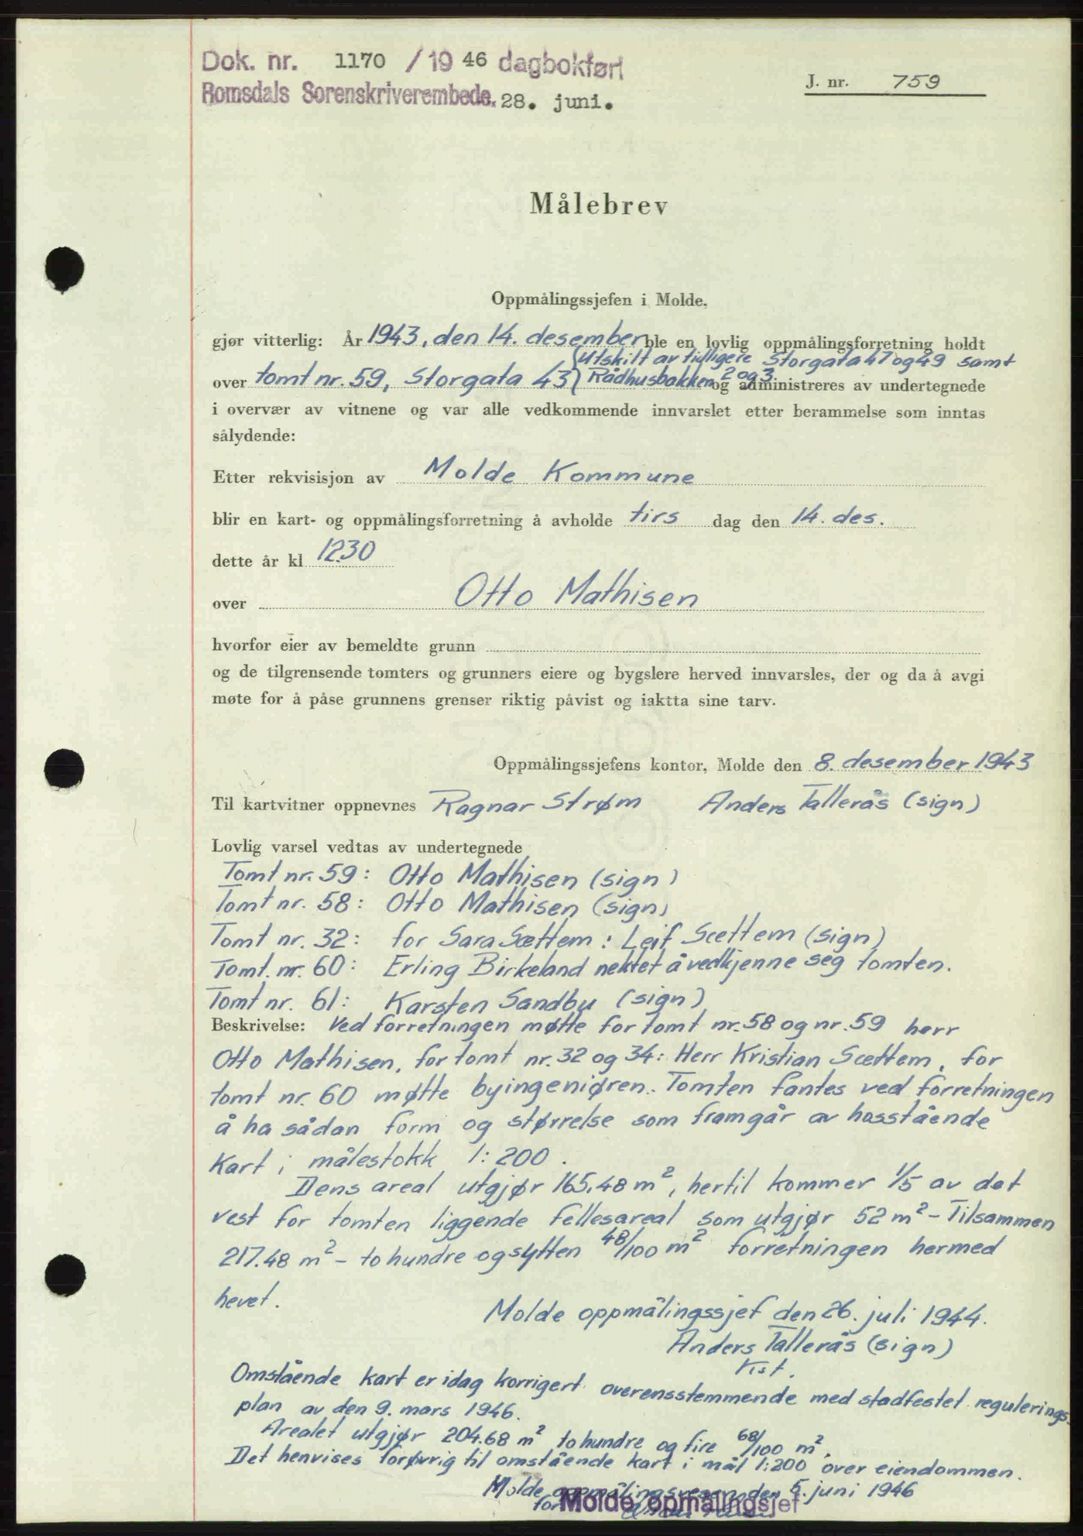 Dok. nr. 1170 / 19 46 dagbokført
Romsdals Sorenskriverembede. 28. juni.
J. nr. 759
Målebrev
Oppmålingssjefen i Molde,
gjør vitterlig: År 1943, den 14. desember ble en lovlig oppmålingsforretning holdt
(utskilt av tidligere Storgata 47 og 49 samt
over tomt nr. 59, Storgata 43) Rådhusbakken 2 og 3. og administreres av undertegnede
i overvær av vitnene og var alle vedkommende innvarslet etter berammelse som inntas
sålydende:
Etter rekvisisjon av Molde Kommune
blir en kart- og oppmålingsforretning å avholde tirs dag den 14. des.
dette år kl 12.30
over Otto Mathisen
hvorfor eier av bemeldte grunn
og de tilgrensende tomters og grunners eiere og bygslere herved innvarsles, der og da å avgi
møte for å påse grunnens grenser riktig påvist og iaktta sine tarv.
Oppmålingssjefens kontor, Molde den 8. desember 1943
Til kartvitner oppnevnes Ragnar Strøm Anders Tallerås (sign)
Lovlig varsel vedtas av undertegnede
Tomt nr. 59: Otto Mathisen (sign)
Tomt nr. 58: Otto Mathisen (sign)
Tomt nr. 32: for Sara Sættem: Leif Sættem (sign)
Tomt. nr. 60: Erling Birkeland nektet å vedkjenne seg tomten.
Tomt nr. 61: Karsten Sandbu (sign)
Beskrivelse: Ved forretningen møtte for tomt nr. 58 og nr. 59 herr
Otto Mathisen, for tomt nr. 32 og 34: Herr Kristian Sættem, for
tomt nr. 60 møtte byingeniøren. Tomten fantes ved forretningen
å ha sådan form og størrelse som framgår av hosstående
kart i målestokk 1:200.
Dens areal utgjør 165,48 m², hertil kommer 1/5 av det
vest for tomten liggende fellesareal som utgjør 52 m² - Tilsammen
217.48 m² - to hundre og sytten 48/100 m² forretningen hermed
hevet.
Molde oppmålingssjef den 26. juli 1944.
Anders Tallerås (sign)
Kst.
Omstående kart er idag korrigert overensstemmende med stadfestet regulerings-
plan av den 9. mars 1946.
Arealet utgjør 204.68 m² to hundre og fire 68/100 m².
Det henvises forøvrig til omstående kart i mål 1:200 over eiendommen.
Molde oppmålingsvesen den 5. juni 1946
for Molde opmålingsjef